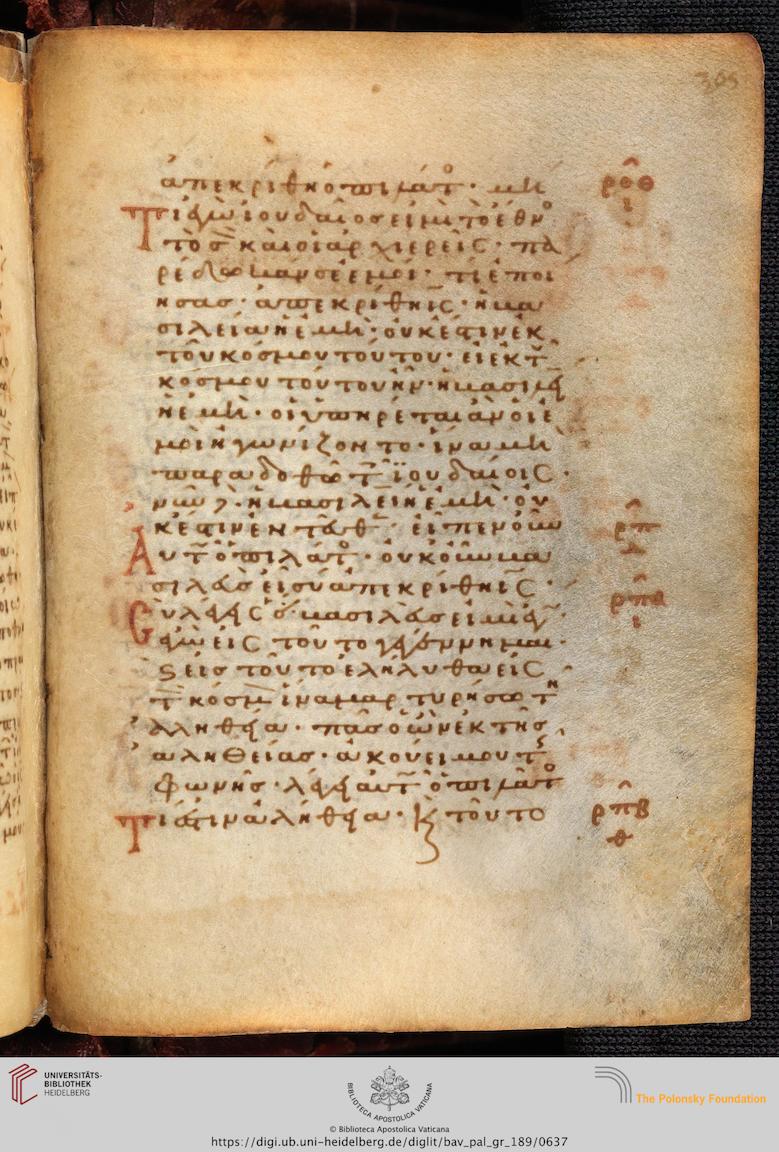 305
ἀπεκρίθη ὁ πιλάτο· μὴ
ρο̂θ
ι
Τι ἐγὼ ἰουδαῖοσ εἰμὶ τὸ ἔθνο
τὸ σ̅ καὶ οἱ ἀρχιερεῖς· πα
ρέδωκαν σε ἐμοί· τί ἐποί
ησασ· ἀπεκρίθη ις̅· ἡ βα
σιλεία ἡ ἐμὴ· οὐκ ἔστιν ἐκ
τοῦ κόσμου τούτου· εἰ ἐκ τ
κόσμου τούτου ἦν· ἡ βασιλεί
ἡ ἐμὴ· οἱ ὑπηρέται ἂν οἱ ἐ
μοὶ ἠγωνίζοντο· ἵνα μὴ
παραδοθῶ τ ϊουδαίοις·
νῦν ἡ βασιλεί ἡ ἐμὴ· οὐ
κ ἔστιν ἐντεῦθ· εἶπεν οὖν
ρπ̂
Αὐτ ὁ πιλάτο· οὐκ οὖν βα
σιλεὺσ εἶ σύ ἀπεκρίθη ις̅·
Cὺ λέγεις ὁ βασιλεύσ εἰμι ἐγ
ρπ̂α
ι
ἐγὼ εἰς τοῦτο γεγέννημαι·
ϛ εἰσ τοῦτο ἐλήλυθα εἰς
τ κόσμ ἵνα μαρτυρήσω τ
ἀλληθεία· πᾶσ ὁ ὢν ἐκ τῆς
ἀληθείασ· ἀκούει μου τ
φωνῆσ· λέγει αὐτ ὁ πιλάτο
Τί ἐστιν ἀλήθεια· κ τοῦτο
ρπ̂β
θ
UNIVERSITÄTS-
BIBLIOTHEK
HEIDELBERG
BIBLIOTECA APOSTOLICA VATICANA
The Polonsky Foundation
© Biblioteca Apostolica Vaticana
https://digi.ub.uni-heidelberg.de/diglit/bav_pal_gr_189/0637